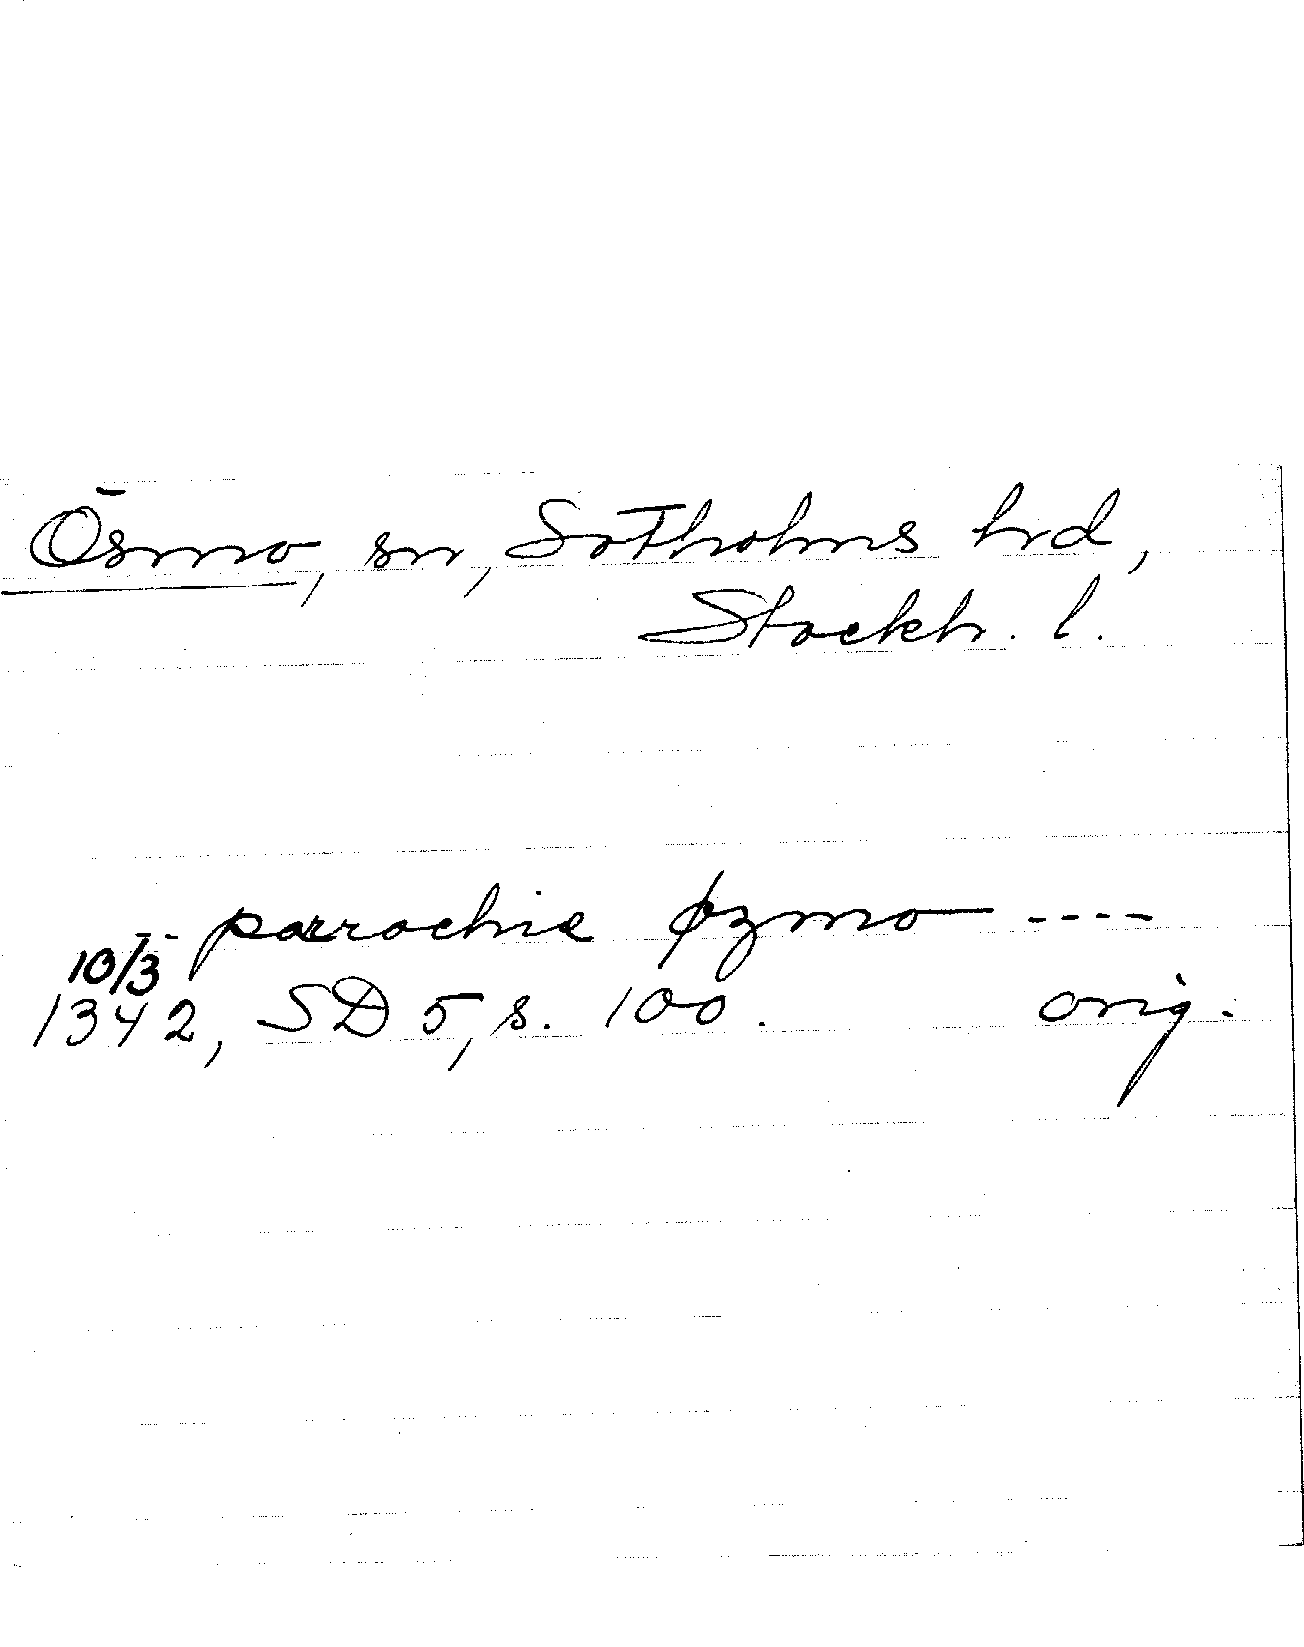 Ösmo, sn, Sotholms hrd,
Stockh. l.
-- parrochie øzmo ----
10/3
1342, SD 5, s. 100. orig.